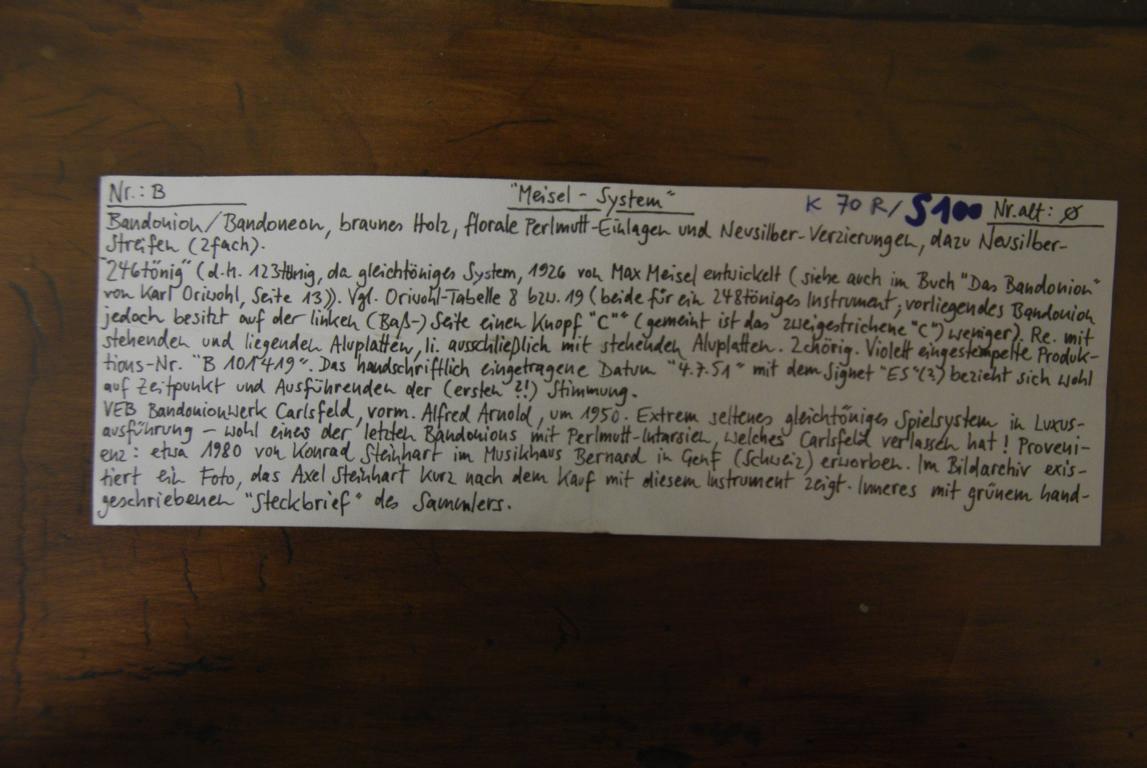 Nr.: B "Meisel - System" K 70 R/ S100 Nr.alt: ø
Bandonion/Bandoneon, braunes Holz, florale Perlmutt-Einlagen und Neusilber-Verzierungen, dazu Neusilber-
Streifen (2fach).
"246tönig" (d.h. 123tönig, da gleichtöniges System, 1926 von Max Meisel entwickelt (siehe auch im Buch "Das Bandonion"
von Karl Oriwohl, Seite 13)). Vgl. Oriwohl-Tabelle 8 bzw. 19 (beide für ein 248töniges Instrument; vorliegendes Bandonion
jedoch besitzt auf der linken (Baß-) Seite einen Knopf "C"" (gemeint ist das zweigestrichene "C") weniger). Re. mit
stehenden und liegenden Aluplatten, li. ausschließlich mit stehenden Aluplatten. 2chörig. Violett eingestempelte Produk-
tions-Nr. "B 101419". Das handschriftlich eingetragene Datum "4.7.51" mit dem Signet "ES"(?) bezieht sich wohl
auf Zeitpunkt und Ausführenden der (ersten ?!) Stimmung.
VEB Bandonionwerk Carlsfeld, vorm. Alfred Arnold, um 1950. Extrem seltenes gleichtöniges Spielsystem in Luxus-
ausführung – wohl eines der letzten Bandonions mit Perlmutt-Intarsien, welches Carlsfeld verlassen hat! Proveni-
enz: etwa 1980 von Konrad Steinhart im Musikhaus Bernard in Genf (Schweiz) erworben. Im Bildarchiv exis-
tiert ein Foto, das Axel Steinhart kurz nach dem Kauf mit diesem Instrument zeigt. Inneres mit grünem hand-
geschriebenen "Steckbrief" des Sammlers.